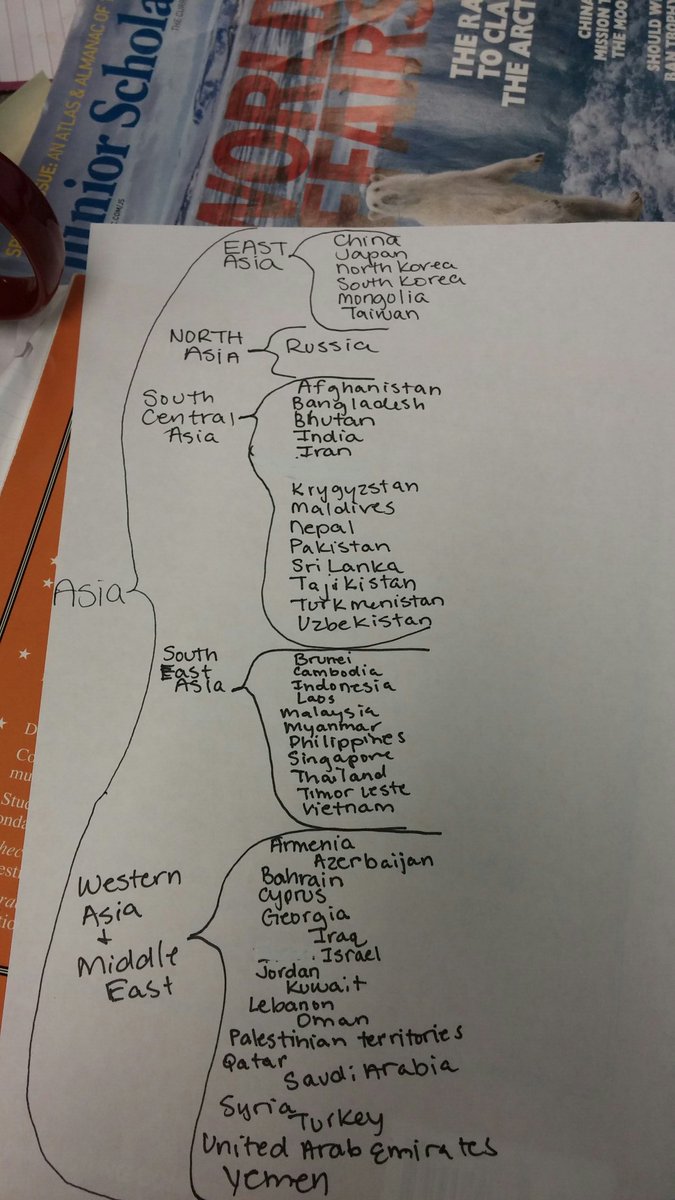 ISSUE: AN ATLAS & ALMANAC OF
Junior Schola
WORLD
AFFAIRS
THE RA
TO CLA
THE ARCT
CHINA
MISSION T
THE MOO
SHOULD W
BAN TROPHY
EAST
Asia
China
Japan
North Korea
South Korea
Mongolia
Taiwan
NORTH
Asia
Russia
South
Central
Asia
Afghanistan
Bangladesh
Bhutan
India
Iran
Krygyzstan
Maldives
Nepal
Pakistan
Sri Lanka
Tajikistan
Turkmenistan
Uzbekistan
Asia
South
East
Asia
Brunei
Cambodia
Indonesia
Laos
Malaysia
Myanmar
Philippines
Singapore
Thailand
Timor Leste
Vietnam
Western
Asia
+
Middle
East
Armenia
Azerbaijan
Bahrain
Cyprus
Georgia
Iraq
Israel
Jordan
Kuwait
Lebanon
Oman
Palestinian territories
Qatar
Saudi Arabia
Syria
Turkey
United Arab Emirates
Yemen
D
Co
mu
Stud